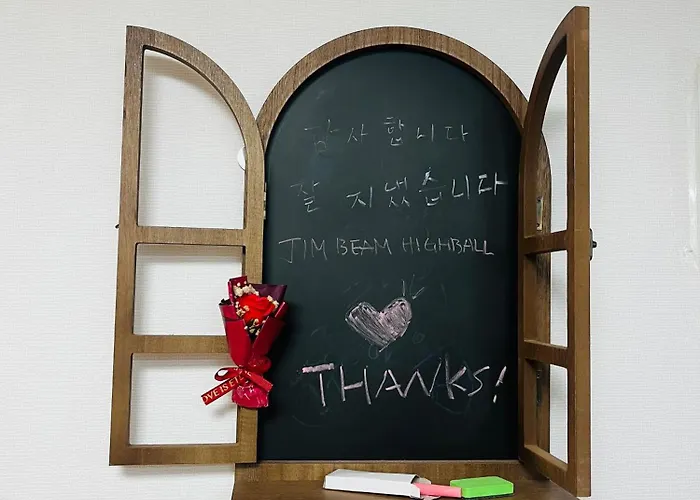 감사합니다
잘 지냈습니다
JIM BEAM HIGHBALL
THANKS!